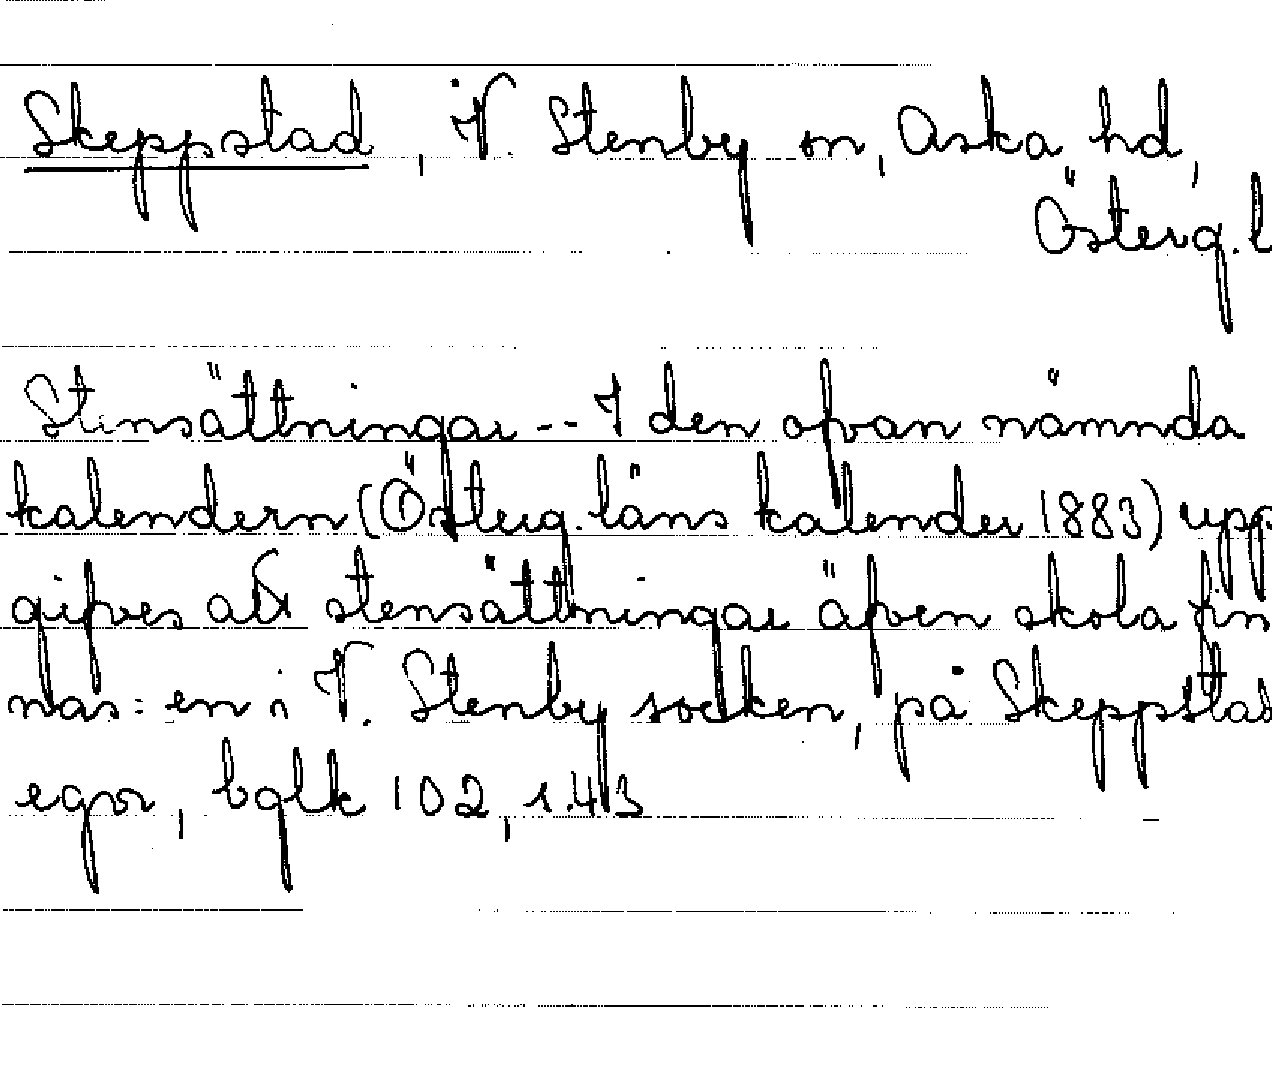 Skeppstad, V. Stenby sn, Aska hd,
Österg. l
Stensättningar -- I den ofvan nämnda
kalendern (Österg. läns kalender 1883) upp
gifves att stensättningar äfven skola fin
nas: en i V. Stenby socken, på Skeppstad
egor, bglk 102, s. 43